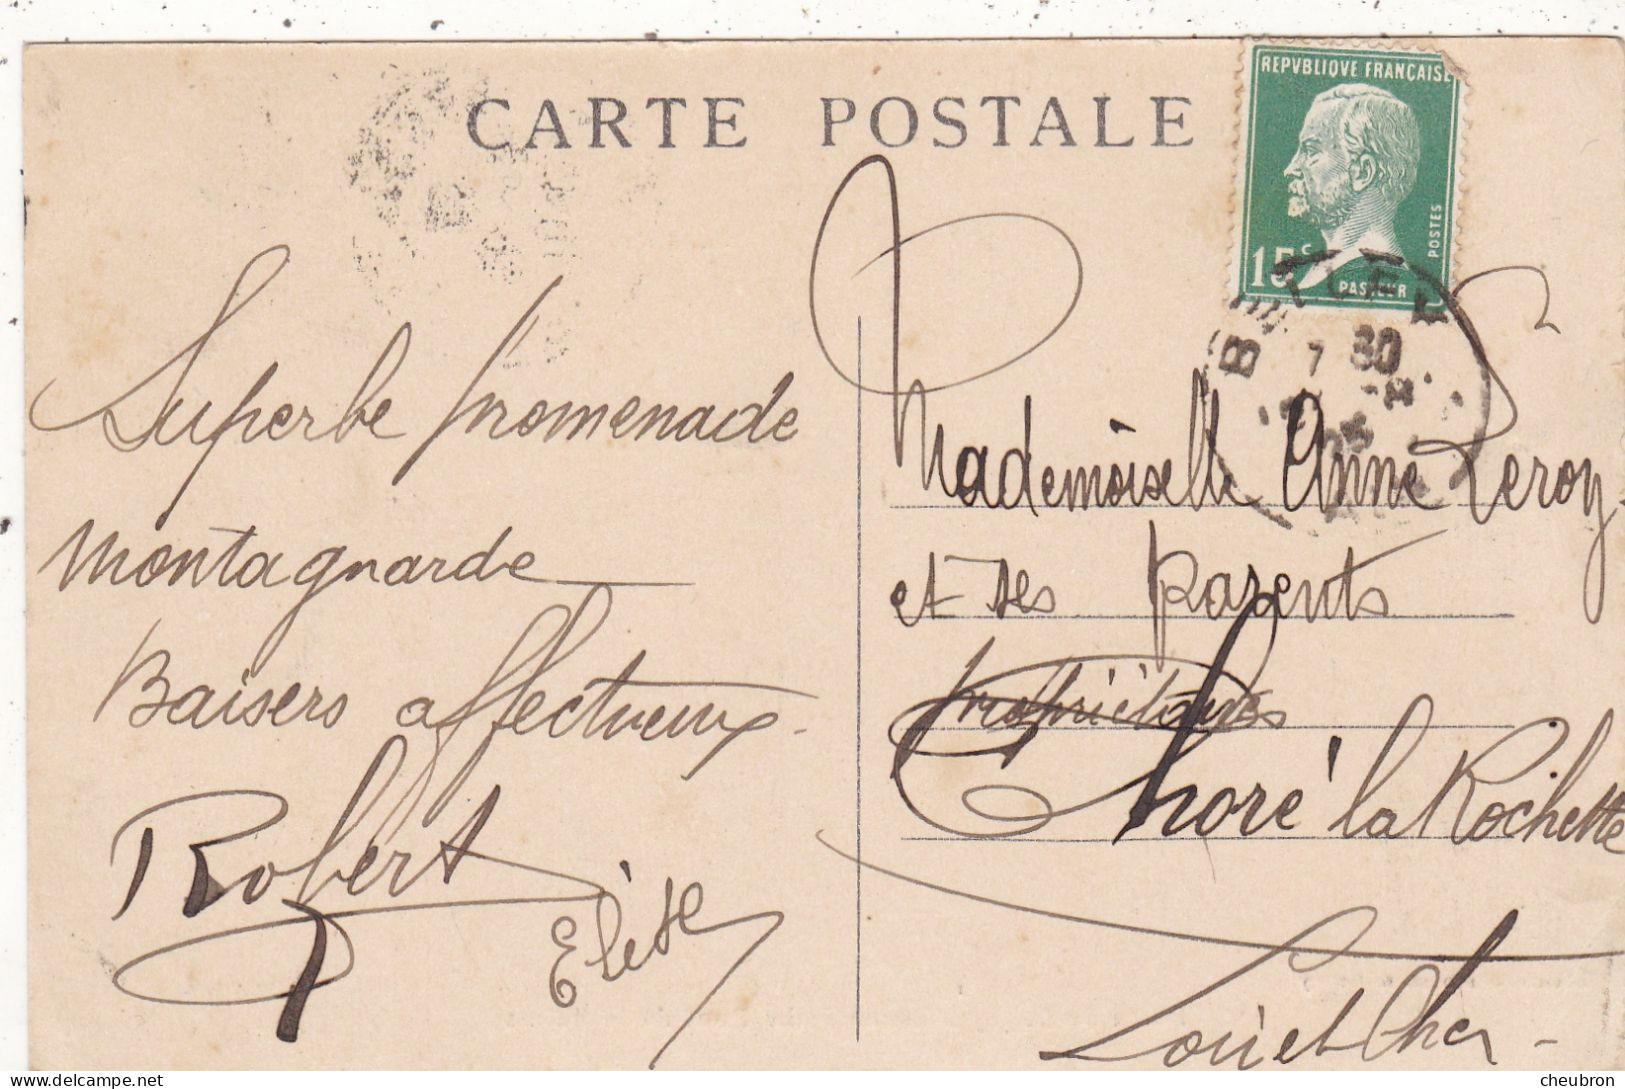 CARTE POSTALE
REPVBLIQVE FRANÇAISE
15c
POSTES
PASTEUR
7 30
Superbe promenade
montagnarde
Baisers affectueux.
Robert
Elise
Mademoiselle Anne Leroy
et ses parents
propriétaires
Thoré la Rochette
Loir et Cher -
cheubron